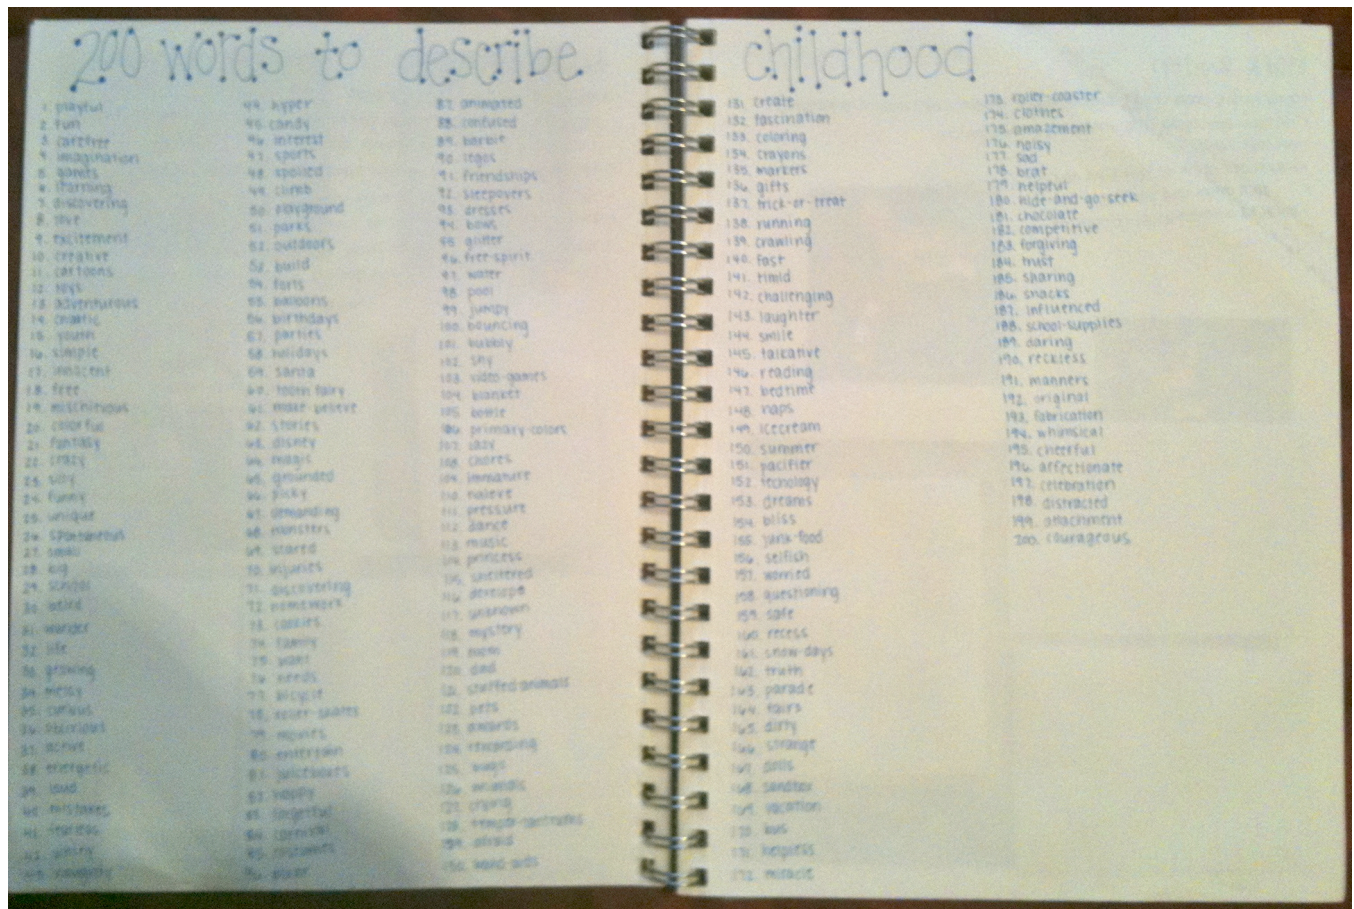 200 words to describe childhood
1. playful
2. fun
3. carefree
4. imagination
5. games
6. learning
7. discovering
8. love
9. excitement
10. creative
11. cartoons
12. toys
13. adventurous
14. chaotic
15. youth
16. simple
17. innocent
18. free
19. mischievous
20. colorful
21. fantasy
22. crazy
23. silly
24. funny
25. unique
26. spontaneous
27. small
28. big
29. school
30. weird
31. wonder
32. life
33. growing
34. messy
35. curious
36.
37. active
38. energetic
39. loud
40. mistakes
41. fearless
42. whiny
43. naughty
44. hyper
45. candy
46. interest
47. sports
48. spoiled
49. climb
50. playground
51. parks
52. outdoors
53. build
54. forts
55. balloons
56. birthdays
57. parties
58. holidays
59. santa
60. tooth fairy
61. make-believe
62. stories
63. disney
64. magic
65. grounded
66. picky
67. demanding
68. monsters
69. scared
70. injuries
71. discovering
72. homework
73. cookies
74. family
75. want
76. needs
77. bicycle
78. roller-skates
79. movies
80. entertain
81. juiceboxes
82. happy
83. forgetful
84. carnival
85. costumes
86.
87. animated
88. confused
89. barbie
90. legos
91. friendships
92. sleepovers
93. dresses
94. bows
95. glitter
96. free-spirit
97. water
98. pool
99. jumpy
100. bouncing
101. bubbly
102. shy
103. video-games
104. blanket
105. bottle
106. primary-colors
107. lazy
108. chores
109. immature
110. naieve
111. pressure
112. dance
113. music
114. princess
115. sheltered
116. develope
117. unknown
118. mystery
119. mom
120. dad
121. stuffed-animals
122. pets
123. awards
124. rewarding
125. bugs
126. animals
127. crying
128. temper-tantrums
129. afraid
130. band-aids
131. create
132. fascination
133. coloring
134. crayons
135. markers
136. gifts
137. trick-or-treat
138. running
139. crawling
140. fast
141. timid
142. challenging
143. laughter
144. smile
145. talkative
146. reading
147. bedtime
148. naps
149. icecream
150. summer
151. pacifier
152. technology
153. dreams
154. bliss
155. junk-food
156. selfish
157. worried
158. questioning
159. safe
160. recess
161. snow-days
162. truth
163. parade
164. fairs
165. dirty
166. strange
167. dolls
168. sandbox
169. vacation
170. bus
171. helpless
172. miracle
173. roller-coaster
174. clothes
175. amazement
176. noisy
177. sad
178. brat
179. helpful
180. hide-and-go-seek
181. chocolate
182. competitive
183. forgiving
184. trust
185. sharing
186. snacks
187. influenced
188. school-supplies
189. daring
190. reckless
191. manners
192. original
193. fabrication
194. whimsical
195. cheerful
196. affectionate
197. celebration
198. distracted
199. attachment
200. courageous